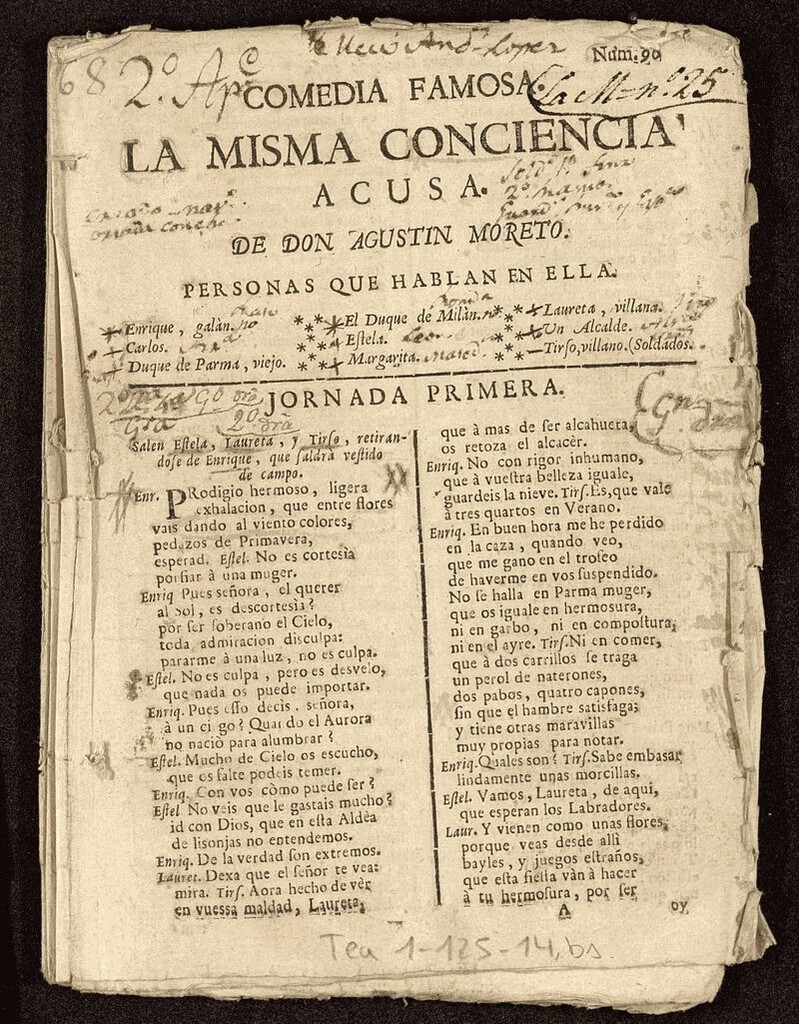 68 2.º Ap.e
Num. 90
COMEDIA FAMOSA.
La M- nº. 25
LA MISMA CONCIENCIA
ACUSA.
DE DON AGUSTIN MORETO.
PERSONAS QUE HABLAN EN ELLA.
Enrique, galàn.
Carlos.
Duque de Parma, viejo.
El Duque de Milàn.
Estela.
Margarita.
Laureta, villana.
Un Alcalde.
Tirso, villano. (Soldados.
JORNADA PRIMERA.
Salen Eſtela, Laureta, y Tirſo, retiran-
doſe de Enrique, que ſaldrà veſtido
de campo.
Enr. PRodigio hermoso, ligera
exhalacion, que entre flores
vais dando al viento colores,
pedazos de Primavera,
esperad. Eſtel. No es cortesìa
porfiar à una muger.
Enriq Pues señora, el querer
al Sol, es descortesìa?
por ſer ſoberano el Cielo,
toda admiracion disculpa:
pararme à una luz, no es culpa.
Eſtel. No es culpa, pero es desvelo,
que nada os puede importar.
Enriq. Pues eſſo decis, señora,
à un ci go? Quando el Aurora
no naciò para alumbrar?
Eſtel. Mucho de Cielo os escucho,
que os falte podeis temer.
Enriq. Con vos còmo puede ſer?
Eſtel No veis que le gastais mucho?
id con Dios, que en eſta Aldèa
de lisonjas no entendemos.
Enriq. De la verdad ſon extremos.
Lauret. Dexa que el ſeñor te vea:
mira. Tirſ. Aora hecho de vèr
en vuessa maldad, Laureta,
que à mas de ſer alcahueta,
os retoza el alcacèr.
Enriq. No con rigor inhumano,
que à vueſtra belleza iguale,
guardeis la nieve. Tirſ. Es, que vale
à tres quartos en Verano.
Enriq. En buen hora me he perdido
en la caza, quando veo,
que me gano en el trofeo
de haverme en vos ſuspendido.
No ſe halla en Parma muger,
que os iguale en hermosura,
ni en garbo, ni en compoſtura,
ni en el ayre. Tirſ. Ni en comer,
que à dos carrillos ſe traga
un perol de naterones,
dos pabos, quatro capones,
ſin que el hambre satisfaga;
y tiene otras maravillas
muy propias para notar.
Enriq. Quales son? Tirſ. Sabe embasar
lindamente unas morcillas.
Eſtel. Vamos, Laureta, de aqui,
que esperan los Labradores.
Laur. Y vienen como unas flores,
porque veas desde allì
bayles, y juegos eſtraños,
que eſta fieſta vàn à hacer
à tu hermosura, por ſer
A oy
Tea 1-125-14, bs